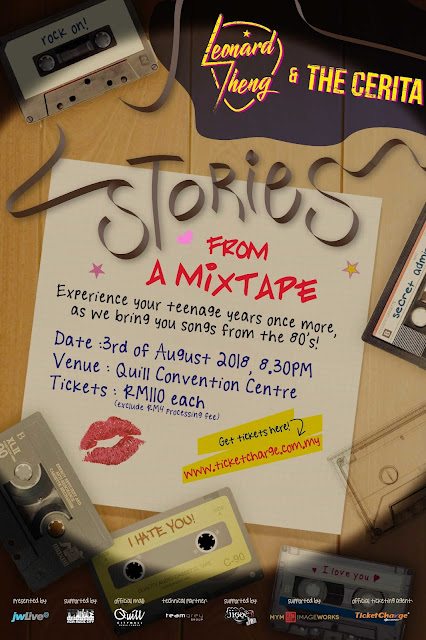 rock on!
Leonard
Theng
& THE CERITA
STORIES
FROM
A MIXTAPE
Experience your teenage years once more,
as we bring you songs from the 80's!
Date :3rd of August 2018, 8.30PM
Venue : Quill Convention Centre
Tickets : RM110 each
(exclude RM4 processing fee)
Get tickets here!
www.ticketcharge.com.my
secret admi
XLII
90
I HATE YOU!
C-90
I love you
presented by
jwlive
supported by
official mall
Quill
CITY MALL
technical partner
teamgrey
supported by
MYM IMAGEWORKS
official ticketing agent
TicketCharge